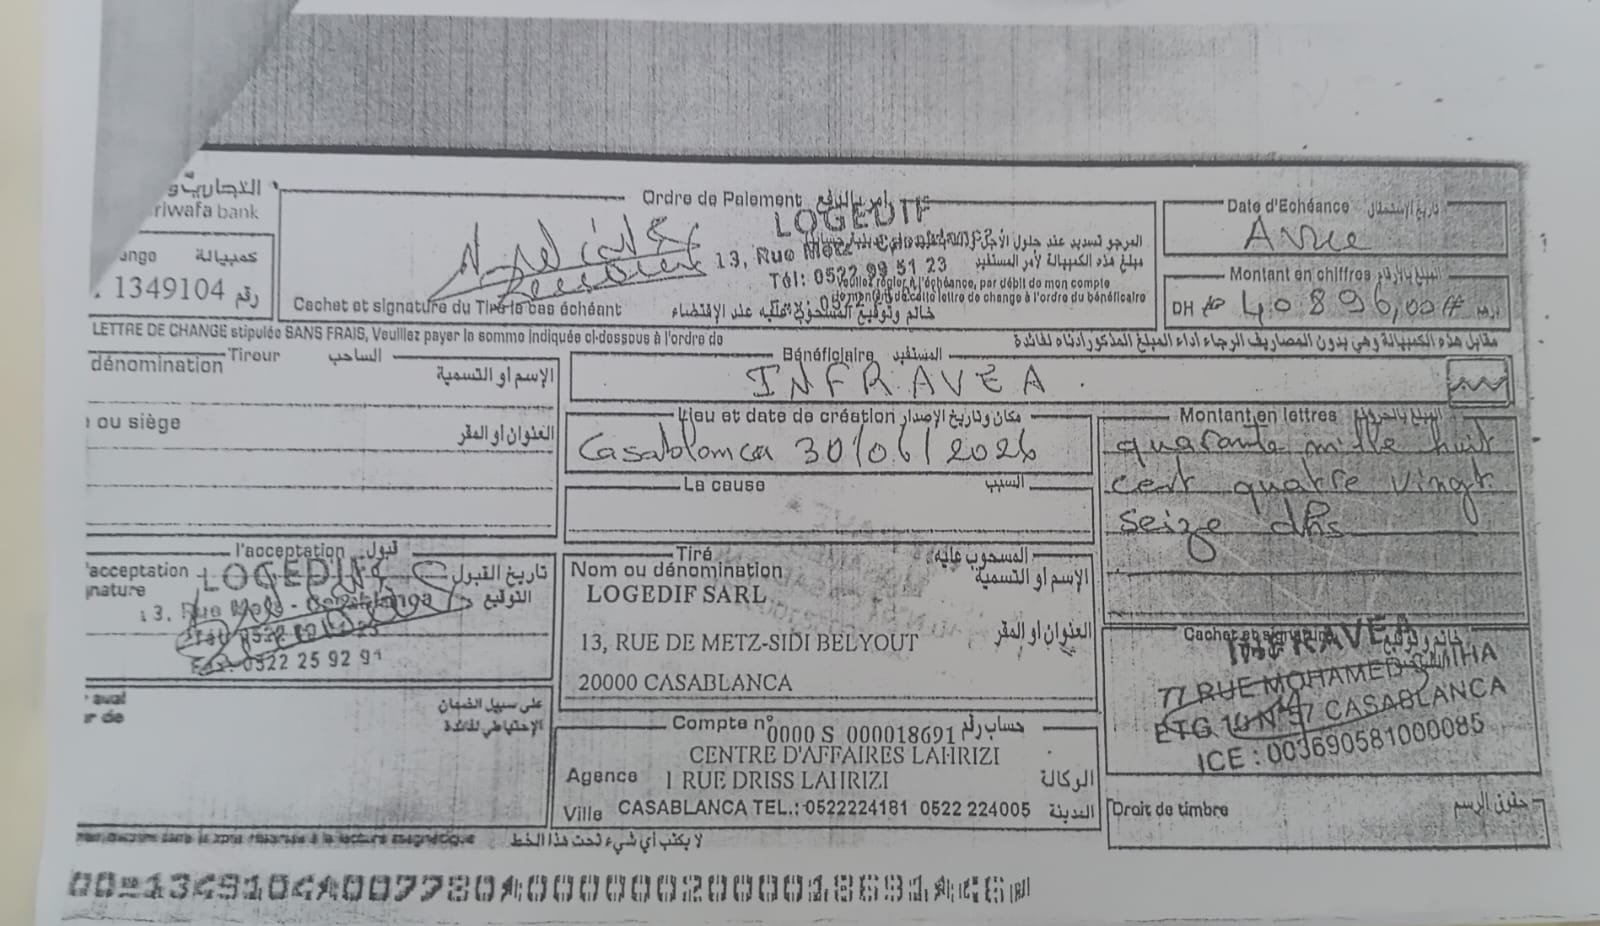 التجاري و
riwafa bank
ange كمبيالة
1349104 رقم
Ordre de Paiement أمر بالدفع
LOGEDIF
المرجو تسديد عند حلول الأجل
13, Rue Metz
مبلغ هذه الكمبيالة لأمر المستفيد
Tél: 0522 99 51 23
Veuillez régler à l'échéance, par débit de mon compte
de cette lettre de change à l'ordre du bénéficiaire
Cachet et signature du Tiré le cas échéant
خاتم وتوقيع المسحوب عليه عند الإقتضاء
Date d'Echéance تاريخ الإستحقاق
Avue
Montant en chiffres المبلغ بالأرقام
DH 40896,00# درهم
LETTRE DE CHANGE stipulée SANS FRAIS, Veuillez payer la somme indiquée ci-dessous à l'ordre de
مقابل هذه الكمبيالة وهي بدون المصاريف الرجاء أداء المبلغ المذكور أدناه لفائدة
Tireur الساحب
dénomination الإسم أو التسمية
ou siège العنوان أو المقر
Bénéficiaire المستفيد
INFRAVEA
Lieu et date de création مكان وتاريخ الإصدار
Casablanca 30/06/2026
La cause السبب
Montant en lettres المبلغ بالحروف
quarante mille huit
cent quatre vingt
seize dhs
l'acceptation قبول
'acceptation تاريخ القبول
nature التوقيع
LOGEDIF
13, Rue Metz - Casablanca
0522 25 92 91
aval على سبيل الضمان
r de الإحتياطي لفائدة
Tiré المسحوب عليه
Nom ou dénomination الإسم أو التسمية
LOGEDIF SARL
العنوان أو المقر
13, RUE DE METZ-SIDI BELYOUT
20000 CASABLANCA
Compte n° حساب رقم
0000 S 000018691
CENTRE D'AFFAIRES LAHRIZI
Agence 1 RUE DRISS LAHRIZI الوكالة
Ville CASABLANCA TEL.: 0522224181 0522 224005 المدينة
Cachet et signature
INFRAVEA
77 RUE MOHAMED SMIHA
ETG 10 N° 57 CASABLANCA
ICE : 003690581000085
Droit de timbre حقوق الرسم
لا يكتب أي شيء تحت هذا الخط